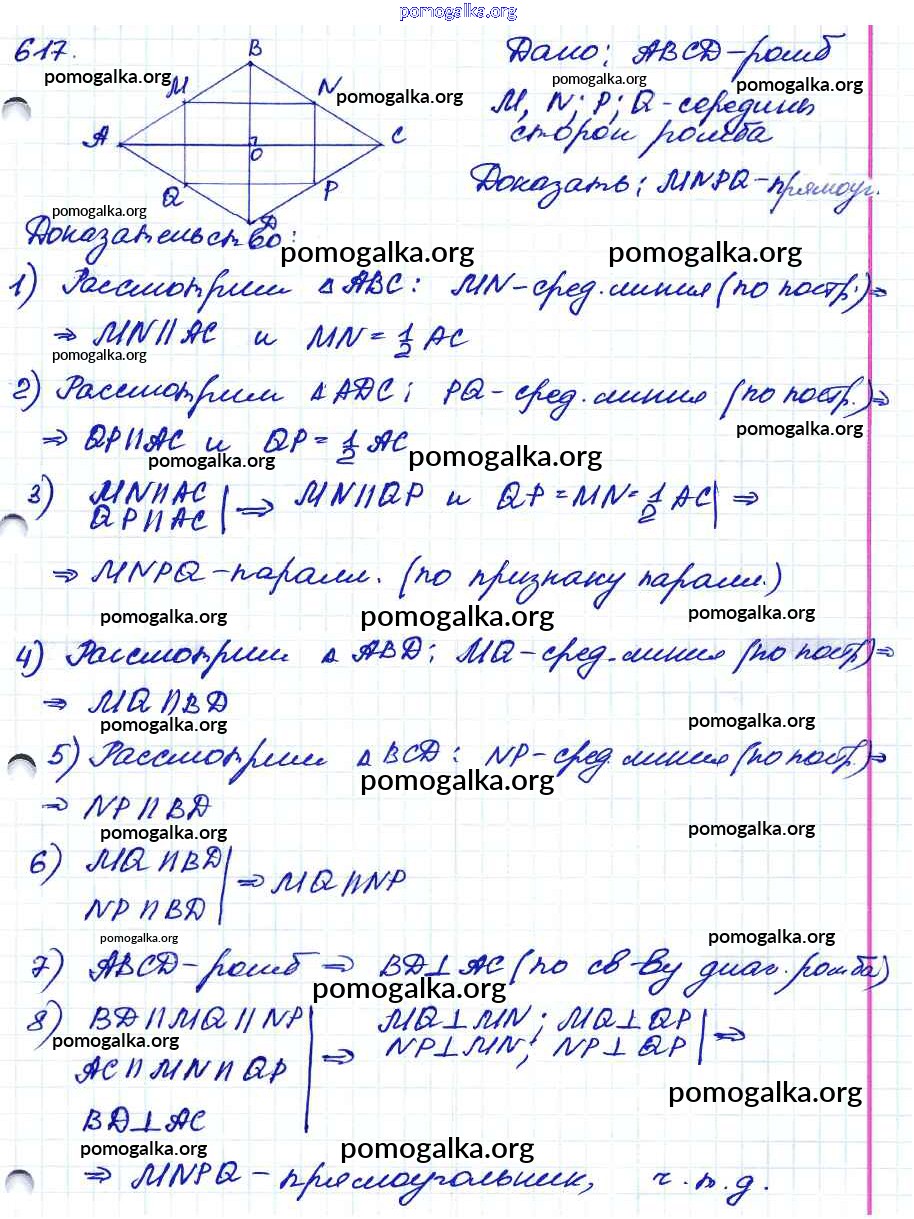 pomogalka.org
617.
B
Дано: ABCD-ромб
pomogalka.org
pomogalka.org
M
N
pomogalka.org
M, N; P; Q-середины
A
C
сторон ромба
O
Q
P
Доказать: MNPQ-прямоуг.
pomogalka.org
D
Доказательство:
pomogalka.org
pomogalka.org
1) Рассмотрим ∆ABC: MN-сред.линия (по постр.) ⇒
⇒ MN||AC и MN = 1/2 AC
pomogalka.org
2) Рассмотрим ∆ADC: PQ-сред.линия (по постр.) ⇒
pomogalka.org
⇒ QP||AC и QP = 1/2 AC
pomogalka.org
pomogalka.org
3) MN||AC | ⇒ MN||QP и QP = MN = 1/2 AC | ⇒
QP||AC
⇒ MNPQ-паралл. (по признаку паралл.)
pomogalka.org
pomogalka.org
pomogalka.org
4) Рассмотрим ∆ABD: MQ-сред.линия (по постр) ⇒
⇒ MQ||BD
pomogalka.org
pomogalka.org
5) Рассмотрим ∆BCD: NP-сред.линия (по постр.) ⇒
pomogalka.org
⇒ NP||BD
pomogalka.org
pomogalka.org
6) MQ||BD | ⇒ MQ||NP
NP||BD
pomogalka.org
pomogalka.org
7) ABCD-ромб ⇒ BD⊥AC (по св-ву диаг. ромба)
pomogalka.org
8) BD||MQ||NP | ⇒ MQ⊥MN; MQ⊥QP | ⇒
pomogalka.org
NP⊥MN; NP⊥QP
AC||MN||QP
pomogalka.org
BD⊥AC
pomogalka.org
pomogalka.org
⇒ MNPQ-прямоугольник, ч.т.д.